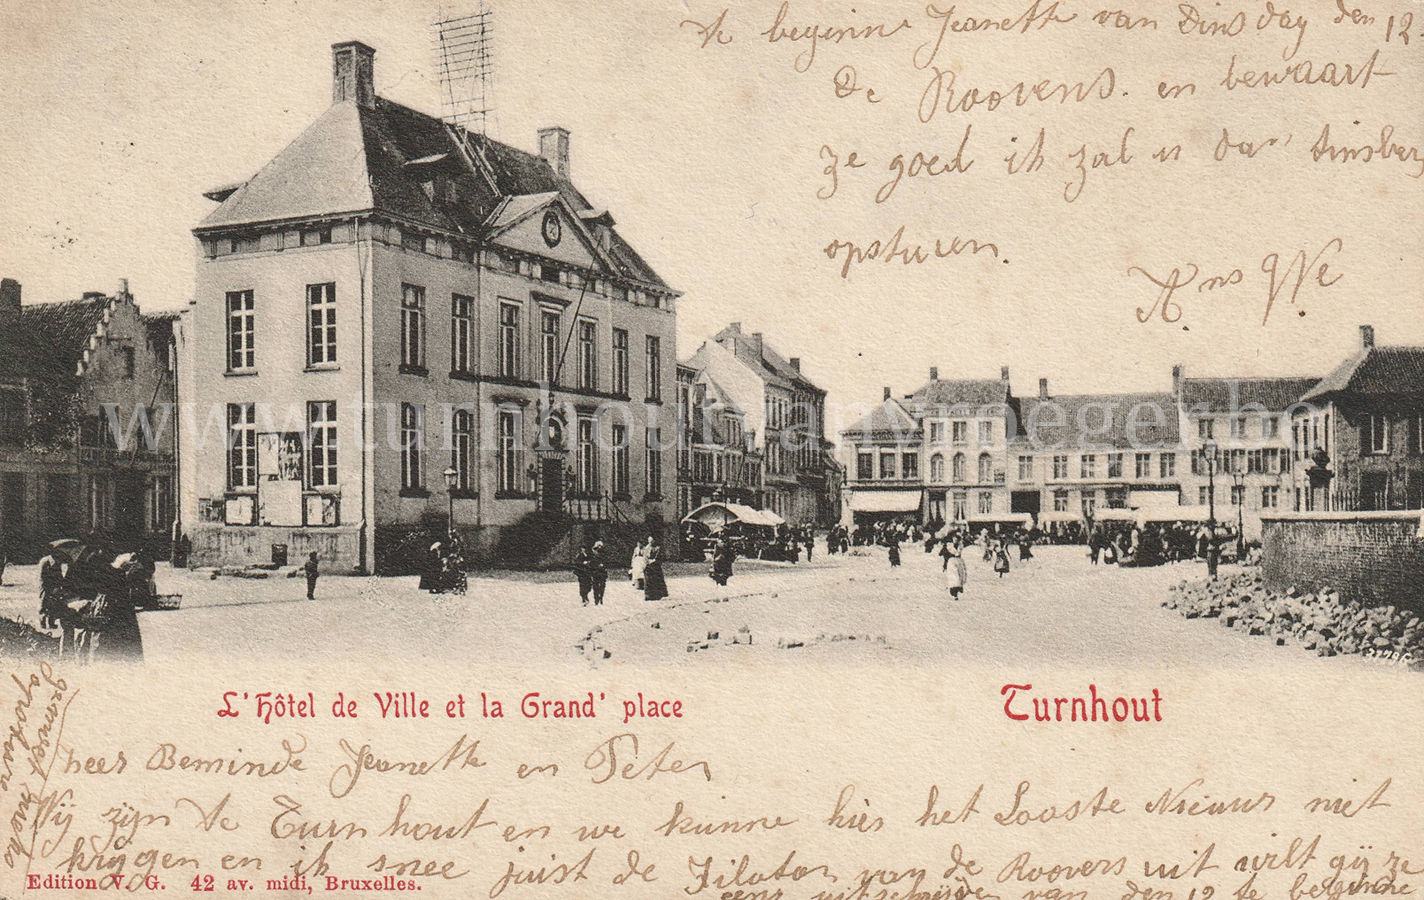 te beginne Jeanette van Dinsdag den 12
De Roovers. en bewaart
ze goed ik zal u dan
opsturen.
www.turnhoutvanvroeger.be
L'Hôtel de Ville et la Grand' place
Turnhout
Zeer Beminde Jeanette en Peter
Wij zijn te Turnhout en we kunne hier het Laaste Nieuws niet
krijgen en ik snee juist de Filaton van de Roovers uit wilt gij ze
eens uitschnijde van den 12 te beginne
Edition V. G. 42 av. midi, Bruxelles.